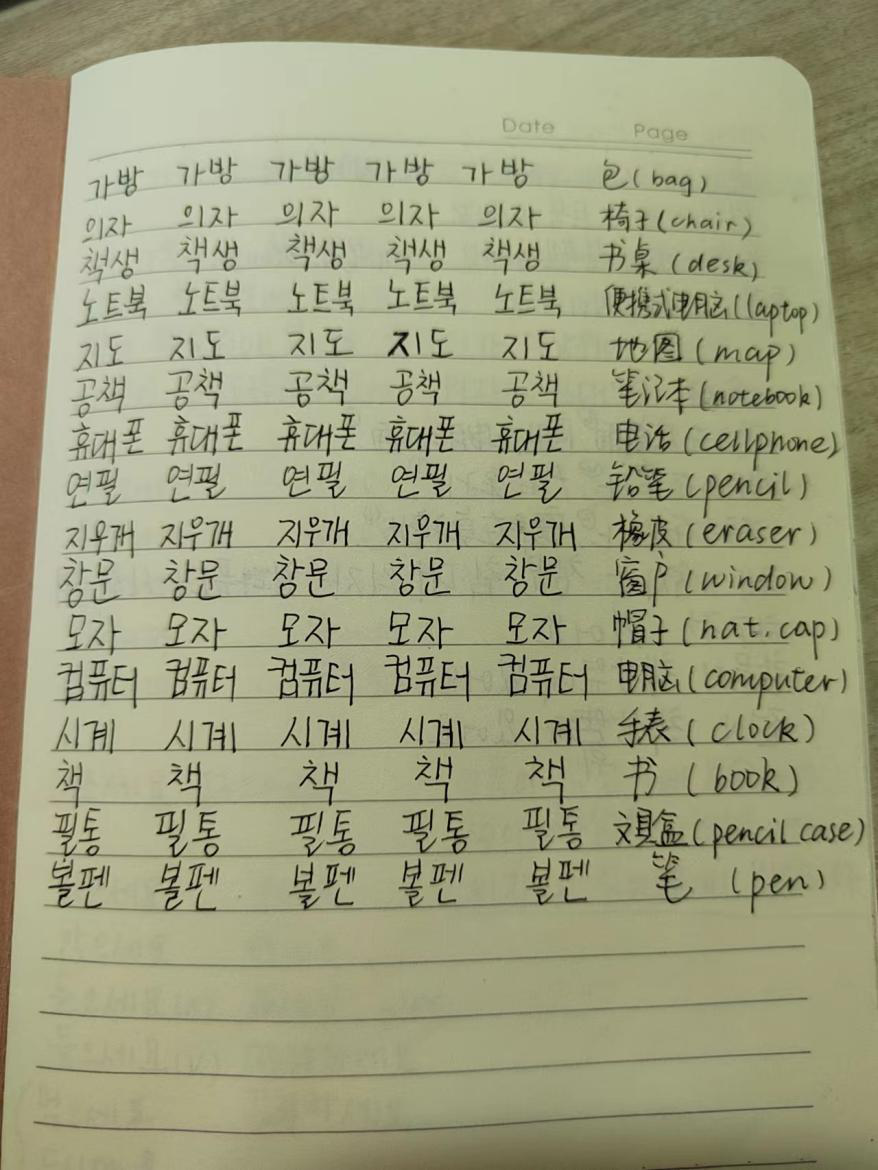 Date Page
가방 가방 가방 가방 가방 包(bag)
의자 의자 의자 의자 의자 椅子(chair)
책생 책생 책생 책생 책생 书桌(desk)
노트북 노트북 노트북 노트북 노트북 便携式电脑(laptop)
지도 지도 지도 지도 지도 地图(map)
공책 공책 공책 공책 공책 笔记本(notebook)
휴대폰 휴대폰 휴대폰 휴대폰 휴대폰 电话(cellphone)
연필 연필 연필 연필 연필 铅笔(pencil)
지우개 지우개 지우개 지우개 지우개 橡皮(eraser)
창문 창문 창문 창문 창문 窗户(window)
모자 모자 모자 모자 모자 帽子(hat.cap)
컴퓨터 컴퓨터 컴퓨터 컴퓨터 컴퓨터 电脑(computer)
시계 시계 시계 시계 시계 手表(clock)
책 책 책 책 책 书(book)
필통 필통 필통 필통 필통 文具盒(pencil case)
볼펜 볼펜 볼펜 볼펜 볼펜 笔(pen)